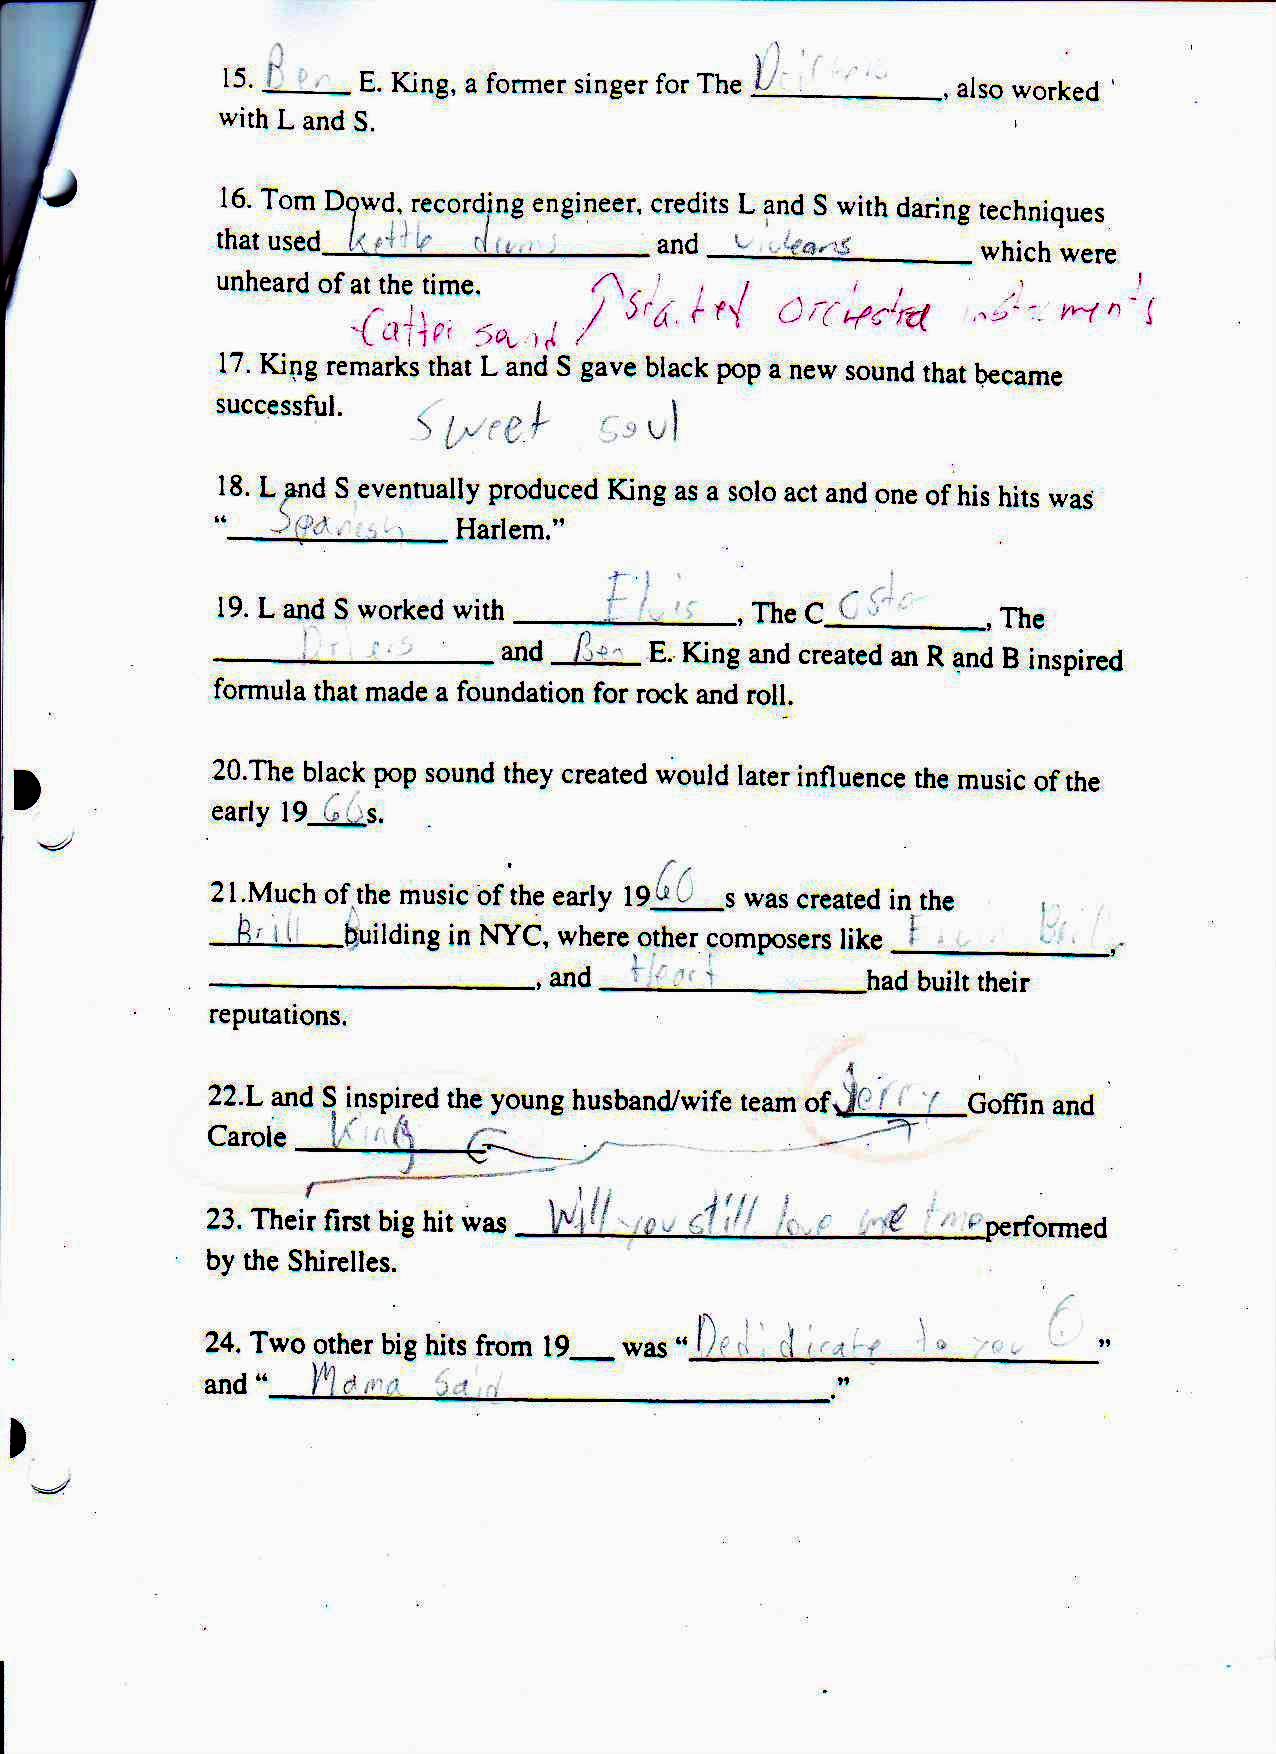 15. Ben E. King, a former singer for The Drifters, also worked
with L and S.
16. Tom Dowd, recording engineer, credits L and S with daring techniques
that used kettle drums and which were
unheard of at the time.
started orchestra
17. King remarks that L and S gave black pop a new sound that became
successful.
Sweet soul
18. L and S eventually produced King as a solo act and one of his hits was
“ Spanish Harlem.”
19. L and S worked with Elvis, The C, The
and Ben E. King and created an R and B inspired
formula that made a foundation for rock and roll.
20.The black pop sound they created would later influence the music of the
early 19 60s.
21.Much of the music of the early 1960 s was created in the
Brill building in NYC, where other composers like
, and had built their
reputations.
22.L and S inspired the young husband/wife team of Jerry Goffin and
Carole King
23. Their first big hit was Will you still love me performed
by the Shirelles.
24. Two other big hits from 19___ was “Dedidicate to you 6”
and “ Mama Said .”